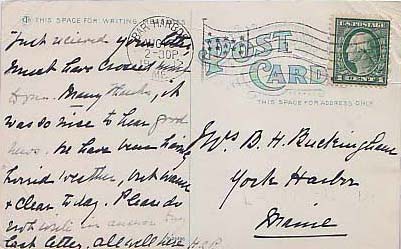 THIS SPACE FOR WRITING
BAR HARBOR
-30P
ME.
POST CARD
U.S. POSTAGE
THIS SPACE FOR ADDRESS ONLY
Just recieved your letter,
must have crossed
Many thanks, it
was so nice to hear good
news. We have been having
horrid weather, but warm
& clear today. Please do
not write in answer
last letter, all well here
Mrs B. H. Buckingham
York Harbor
Maine